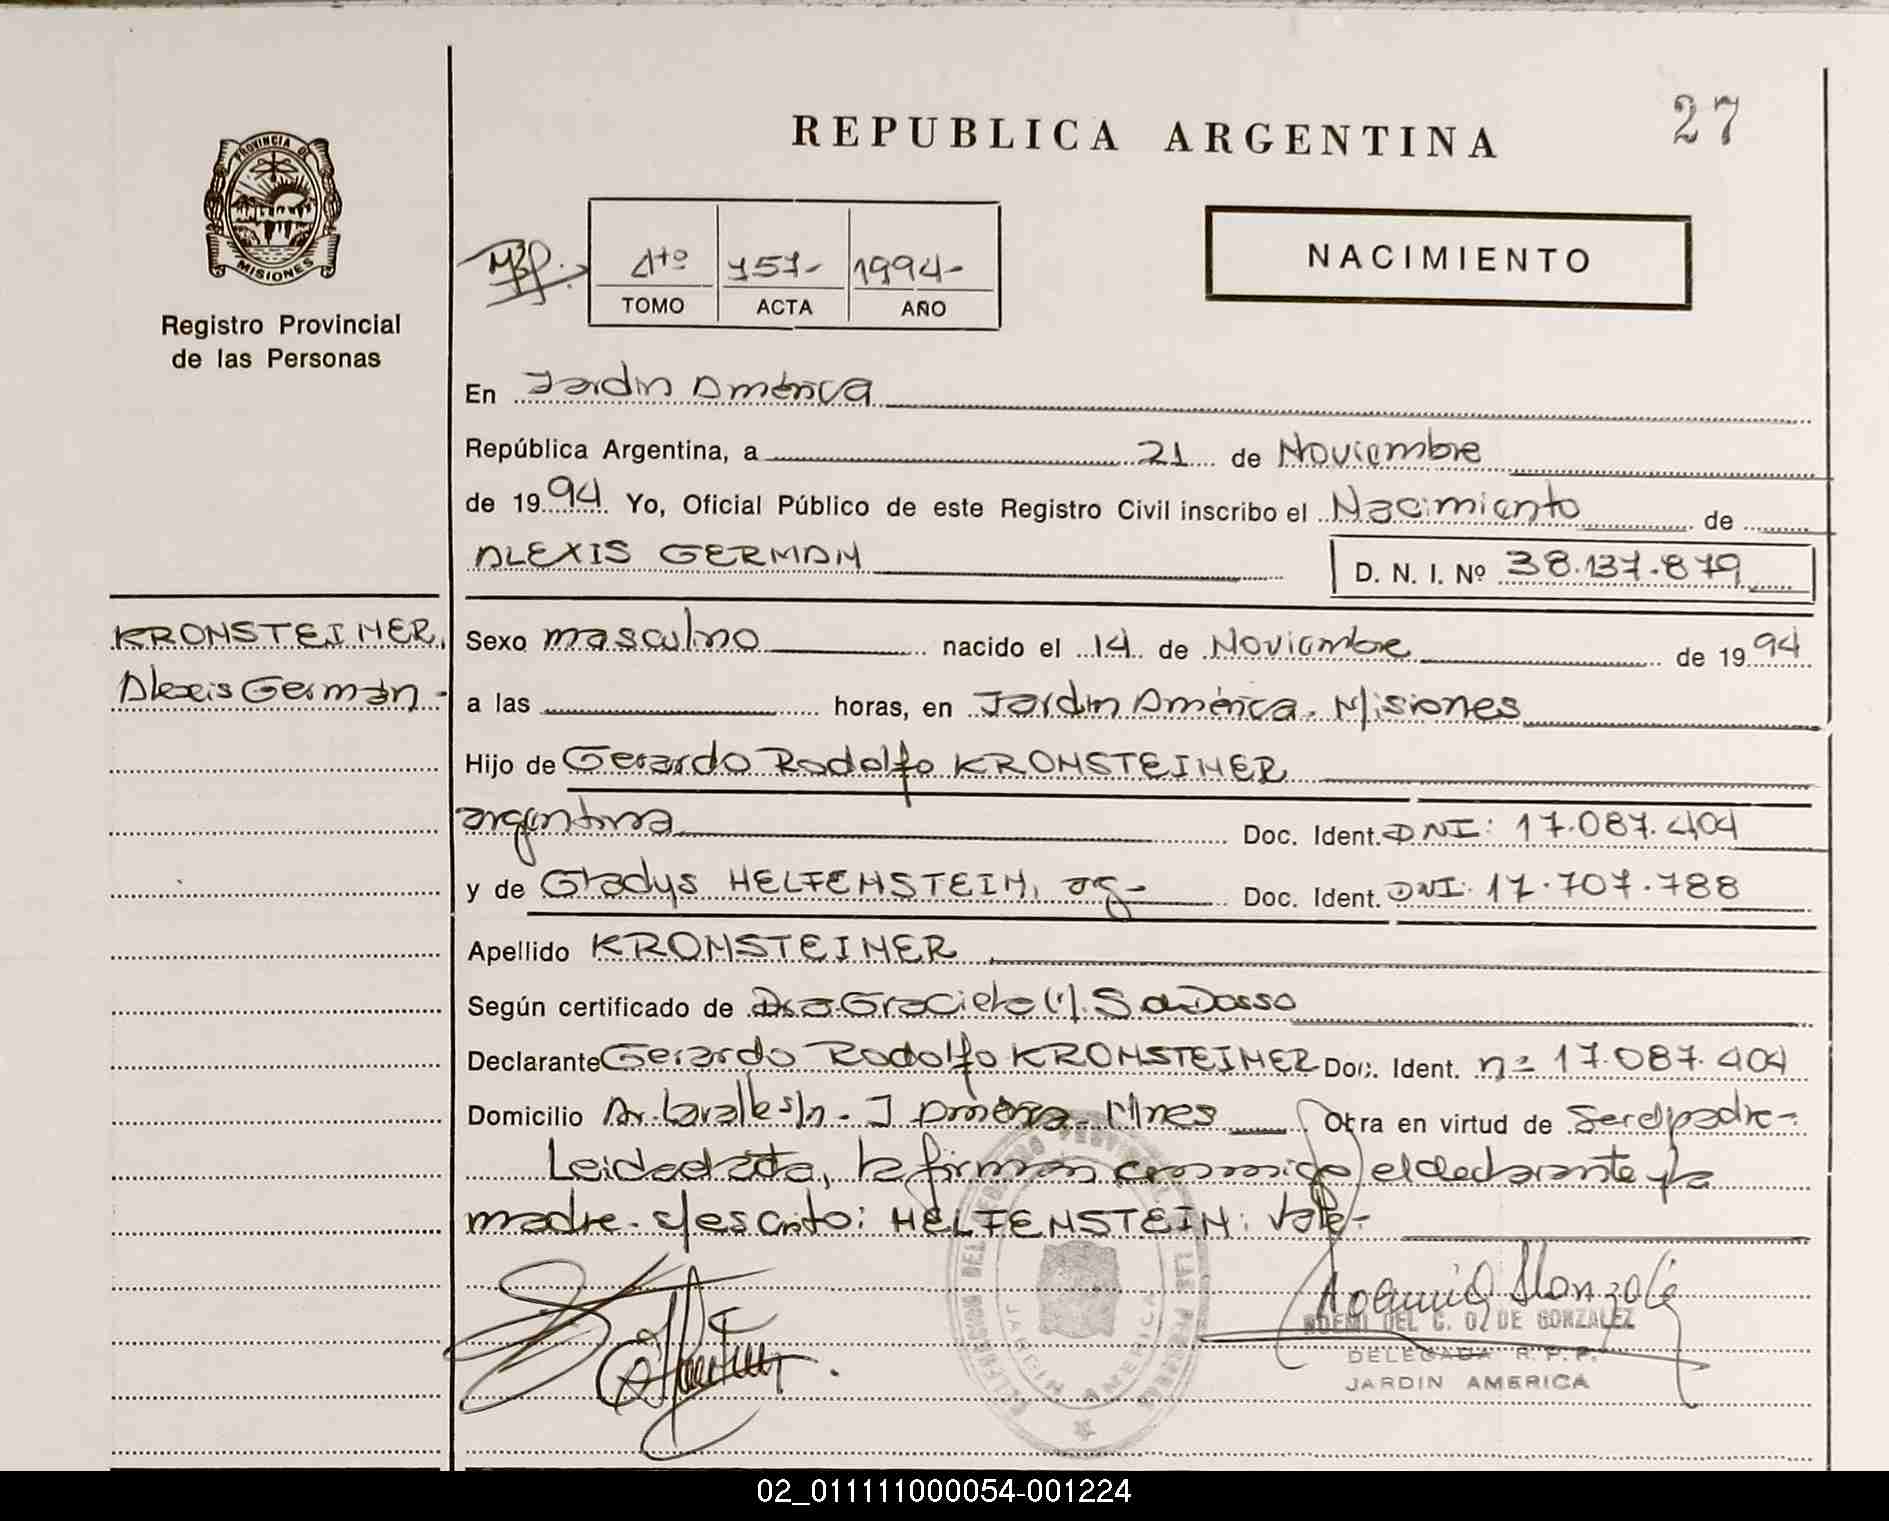 27
REPUBLICA ARGENTINA
PROVINCIA DE
MISIONES
Registro Provincial
de las Personas
4to 757- 1994-
TOMO ACTA AÑO
NACIMIENTO
En Jardin América
República Argentina, a 21 de Noviembre
de 1994 Yo, Oficial Público de este Registro Civil inscribo el Nacimiento de
ALEXIS GERMAN D. N. I. Nº 38.137.879
KRONSTEINER,
Alexis Germán -
Sexo masculino nacido el 14 de Noviembre de 1994
a las horas, en Jardin América. Misiones
Hijo de Gerardo Rodolfo KRONSTEINER
argentina Doc. Ident. DNI: 17.087.404
y de Gladys HELFENSTEIN, arg- Doc. Ident. DNI. 17.707.788
Apellido KRONSTEINER
Según certificado de Dra Graciela
Declarante Gerardo Rodolfo KRONSTEINER Doc. Ident. nº 17.087.404
Domicilio Av. Lavalle s/n - J América. Mnes Obra en virtud de Ser el padre-
Leida el acta, la firman conmigo el declarante y la
madre. s/escrito: HELFENSTEIN: Vale-
JARDIN AMERICA
NOEMI DEL C. O. DE GONZALEZ
DELEGADA R. P. P.
JARDIN AMERICA
02_011111000054-001224